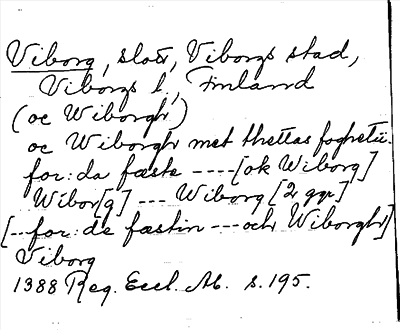 Viborg, slott, Viborgs stad,
Viborgs l., Finland
(oc Wiborgh)
oc Wiborgh met thettas foghetii.
for:da fæste ----[ok Wiborg]
Wibor[g] --- Wiborg [2 ggr]
[--for:de fæstin --- och Wiborgh]
Viborg
1388 Reg. Eccl. Ab. s. 195.